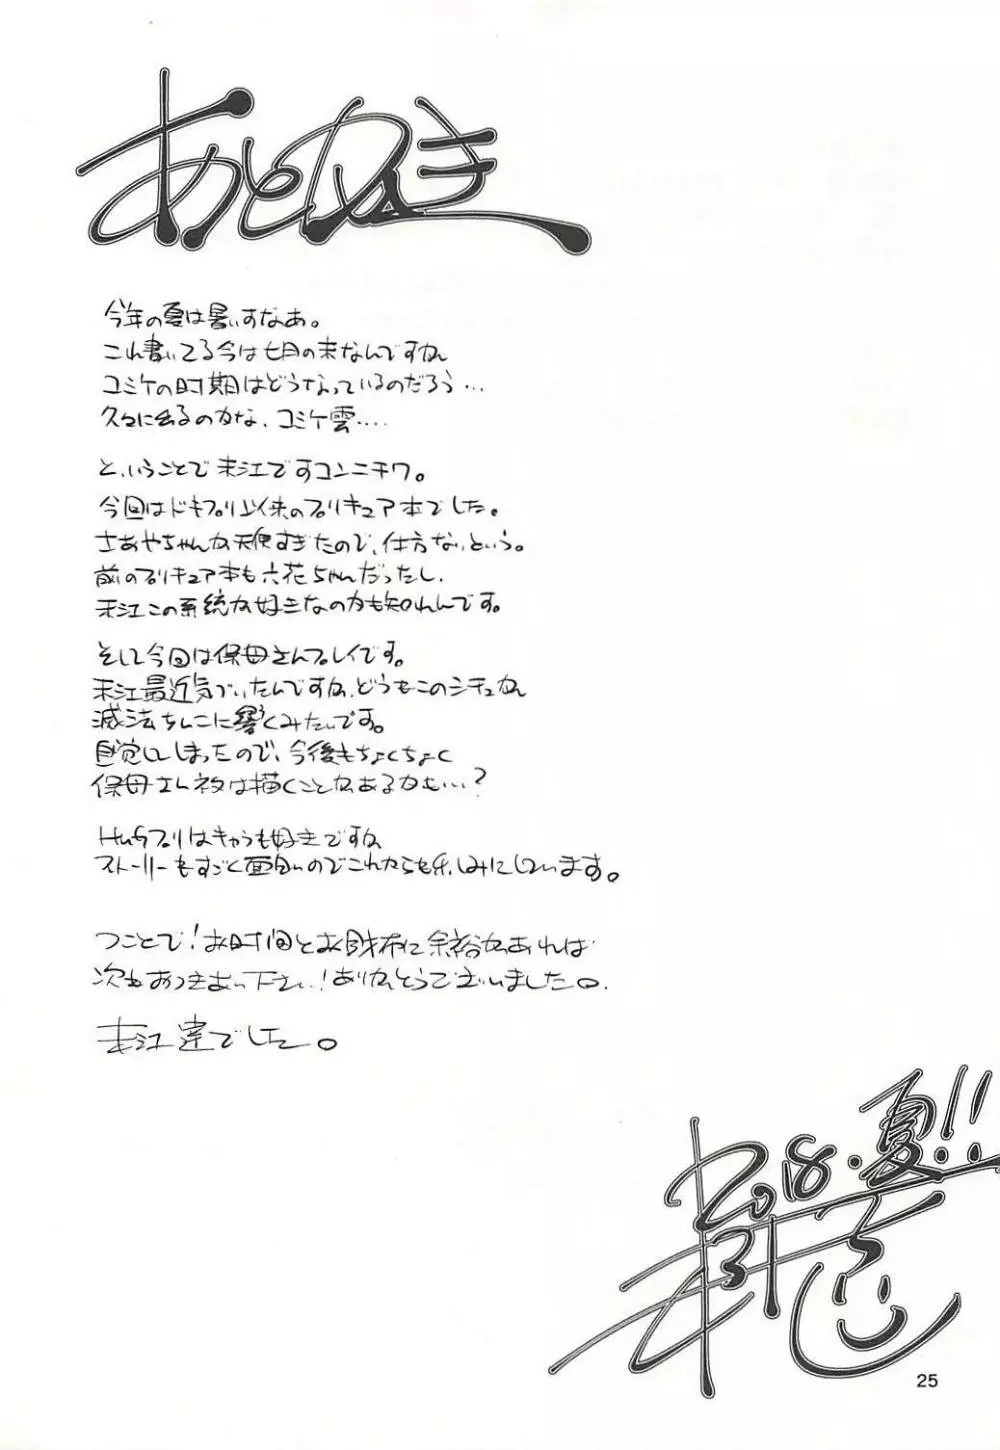 あとがき
今年の夏は暑いすなあ。
これ書いてる今は七月の末なんですがね
コミケの時期はどうなっているのだろう…
久々に出るのかな、コミケ雲….
と、いうことで末江ですコンニチワ。
今回はドキプリ以来のプリキュア本でした。
さあやちゃんが天使すぎたので、仕方ないという。
前のプリキュア本も六花ちゃんだったし、
末江この系統が好きなのかも知れんです。
そして今回は保母さんプレイです。
末江最近気づいたんですが、どうもこのシチュが
滅法ちんこに響くみたいです。
自覚してしまったので、今後もちょくちょく
保母さんネタは描くことがあるかも…?
Hugプリはキャラも好きですが
ストーリーもすごく面白いのでこれからも楽しみにしています。
つことで!お時間とお財布に余裕があれば
次もおつきあい下さい!ありがとうございました。
末江達でした。
2018.夏!!
25